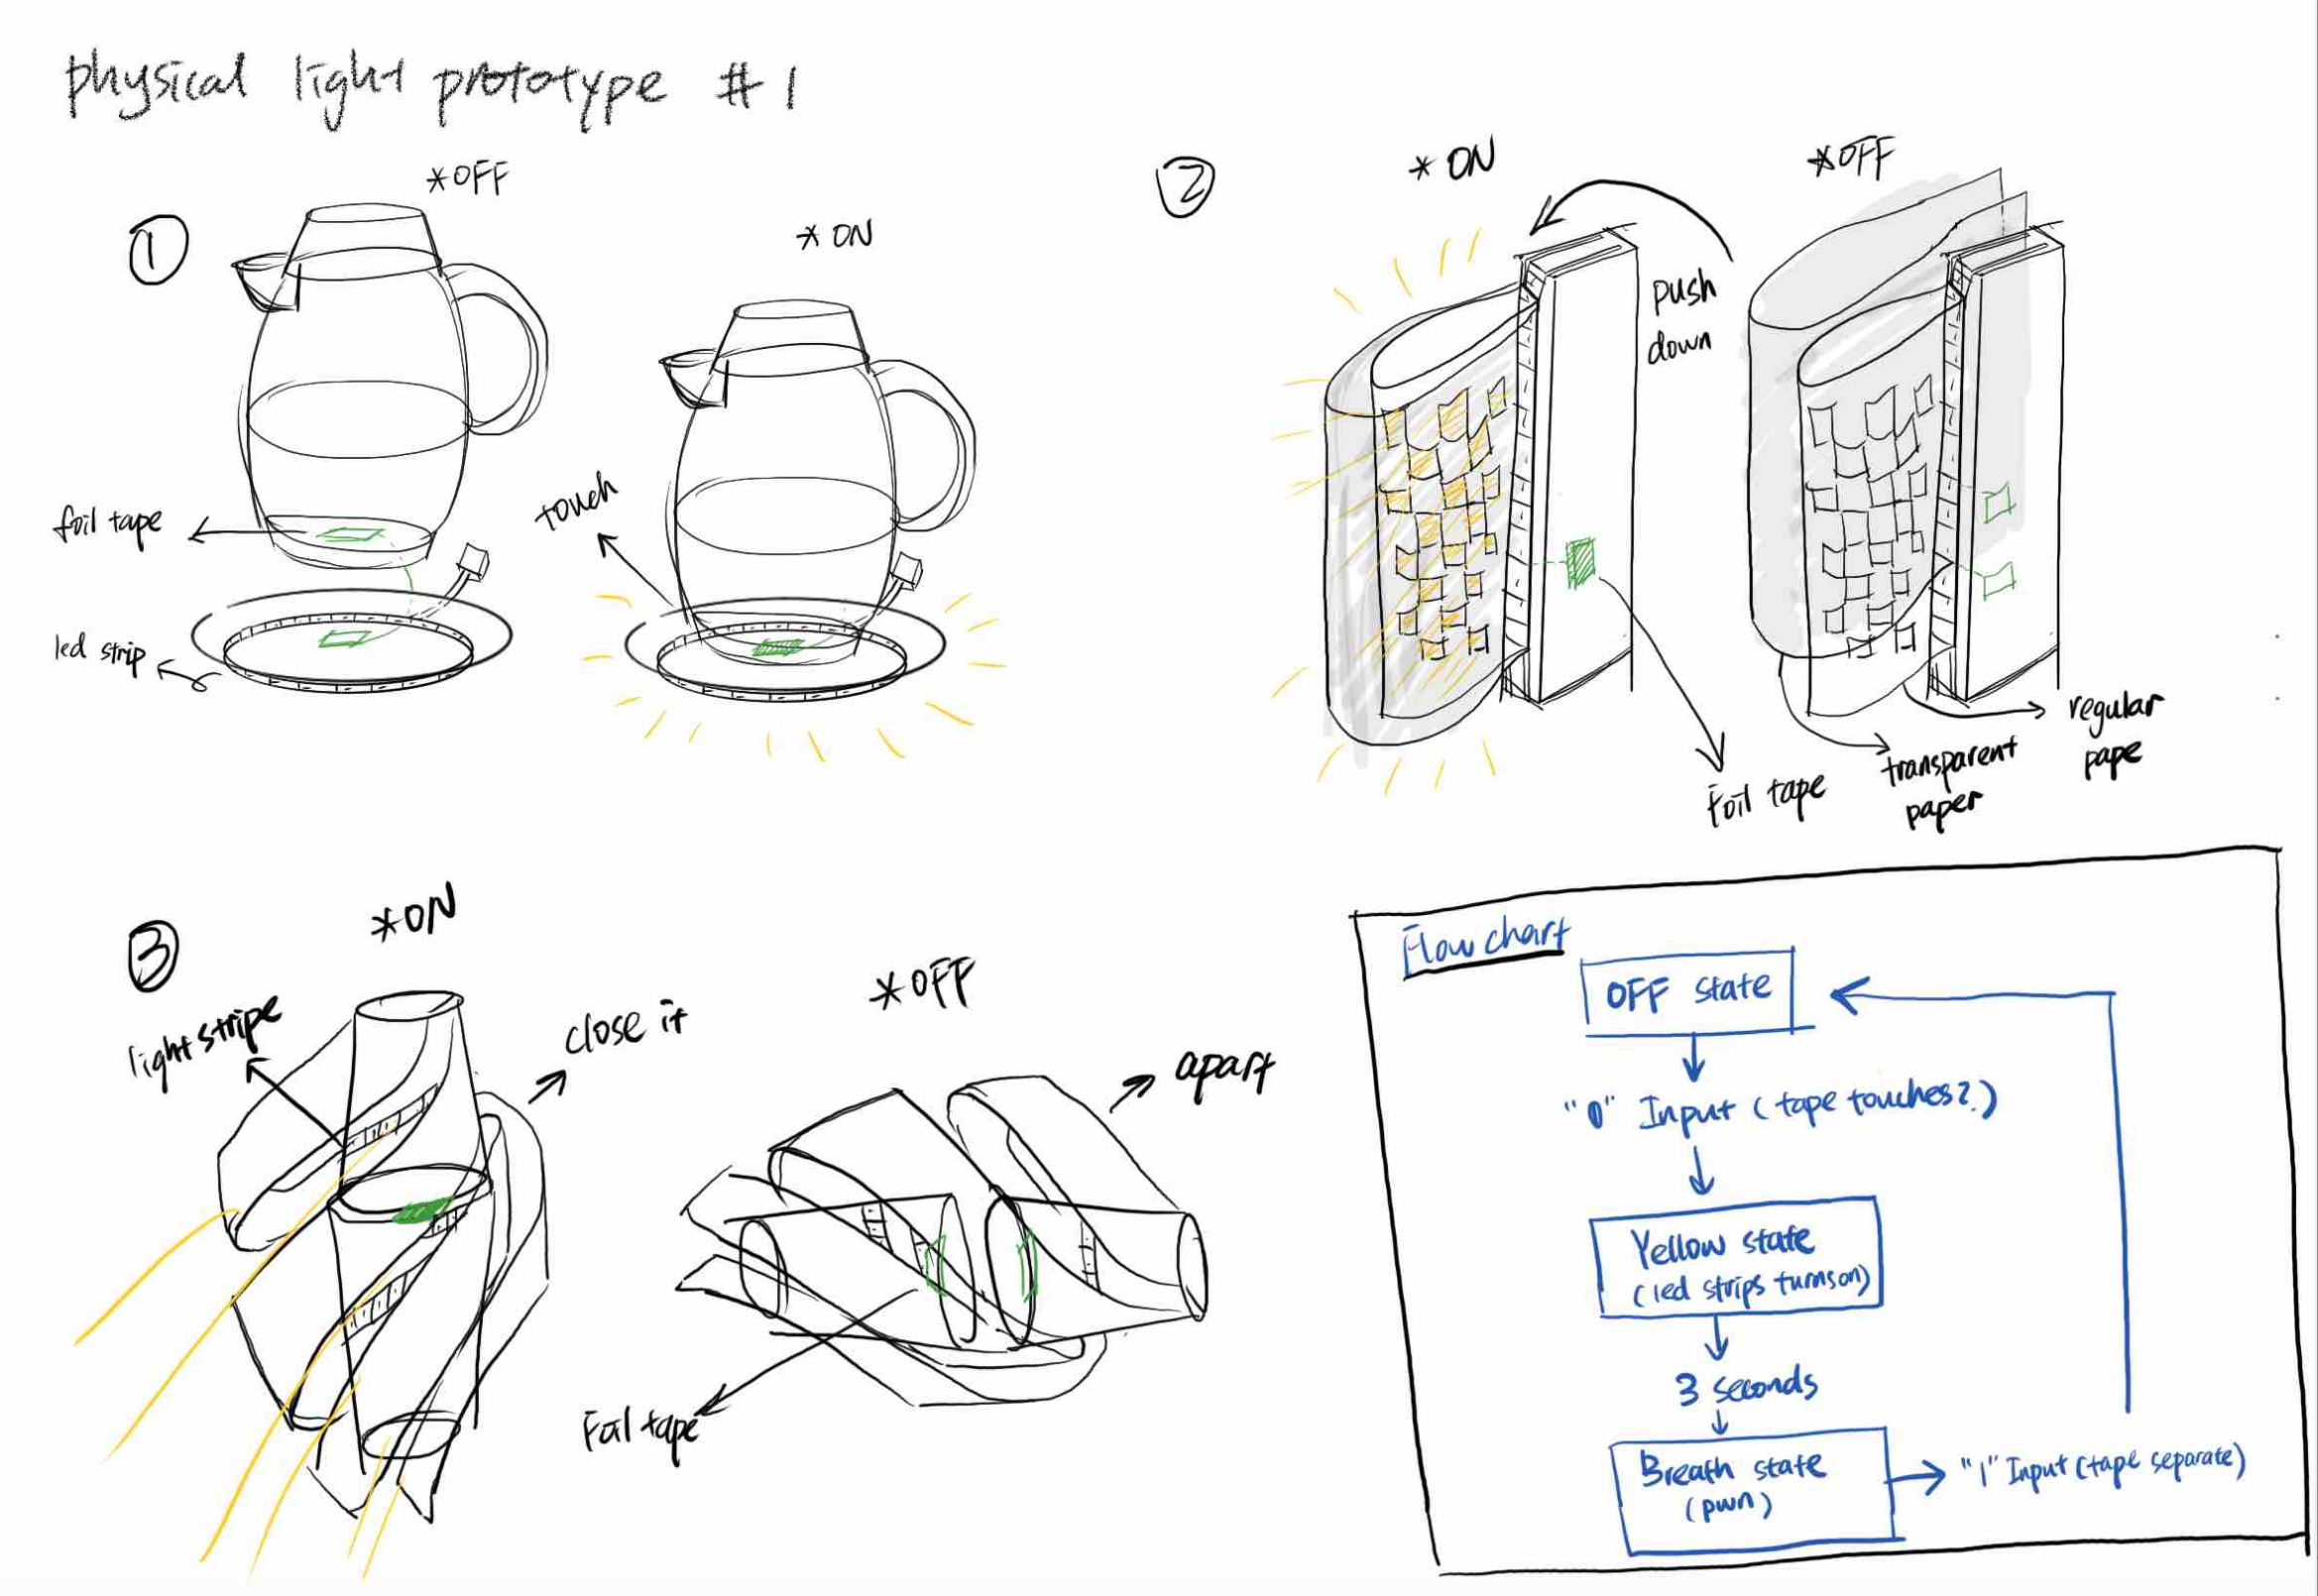 physical light prototype #1
①
*OFF
*ON
foil tape
led strip
touch
②
*ON
*OFF
push
down
Foil tape
transparent
paper
regular
pape
③
*ON
light stripe
close it
*OFF
apart
Foil tape
Flow chart
OFF state
"0" Input (tape touches?)
Yellow state
(led strips turns on)
3 seconds
Breath state
(pwn)
"1" Input (tape separate)